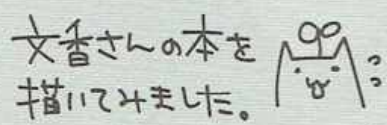 文香さんの本を
描いてみました。